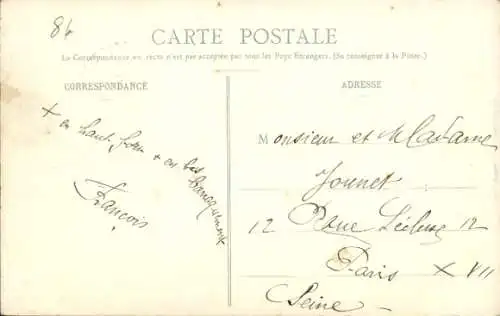 86
CARTE POSTALE
La Correspondance au recto n'est pas acceptée par tous les Pays Etrangers. (Se renseigner à la Poste.)
CORRESPONDANCE
ADRESSE
+ en haut, + en bas
François
Monsieur et Madame
Jounet
12 Rue Lécluse 12
Paris XVII
Seine